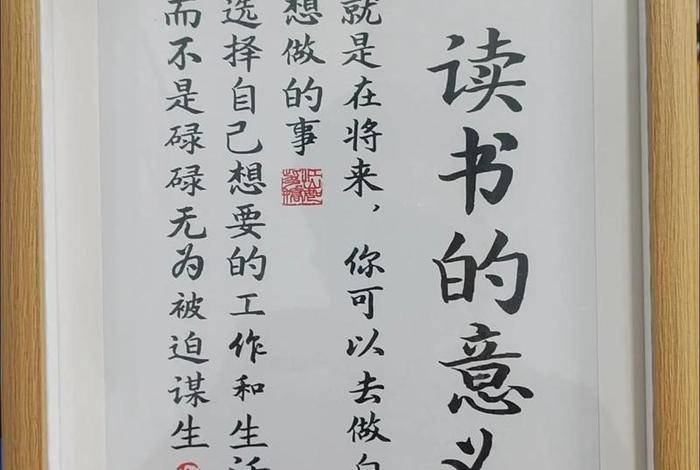 读书的意义
就是在将来，你可以去做自
想做的事
选择自己想要的工作和生活
而不是碌碌无为被迫谋生